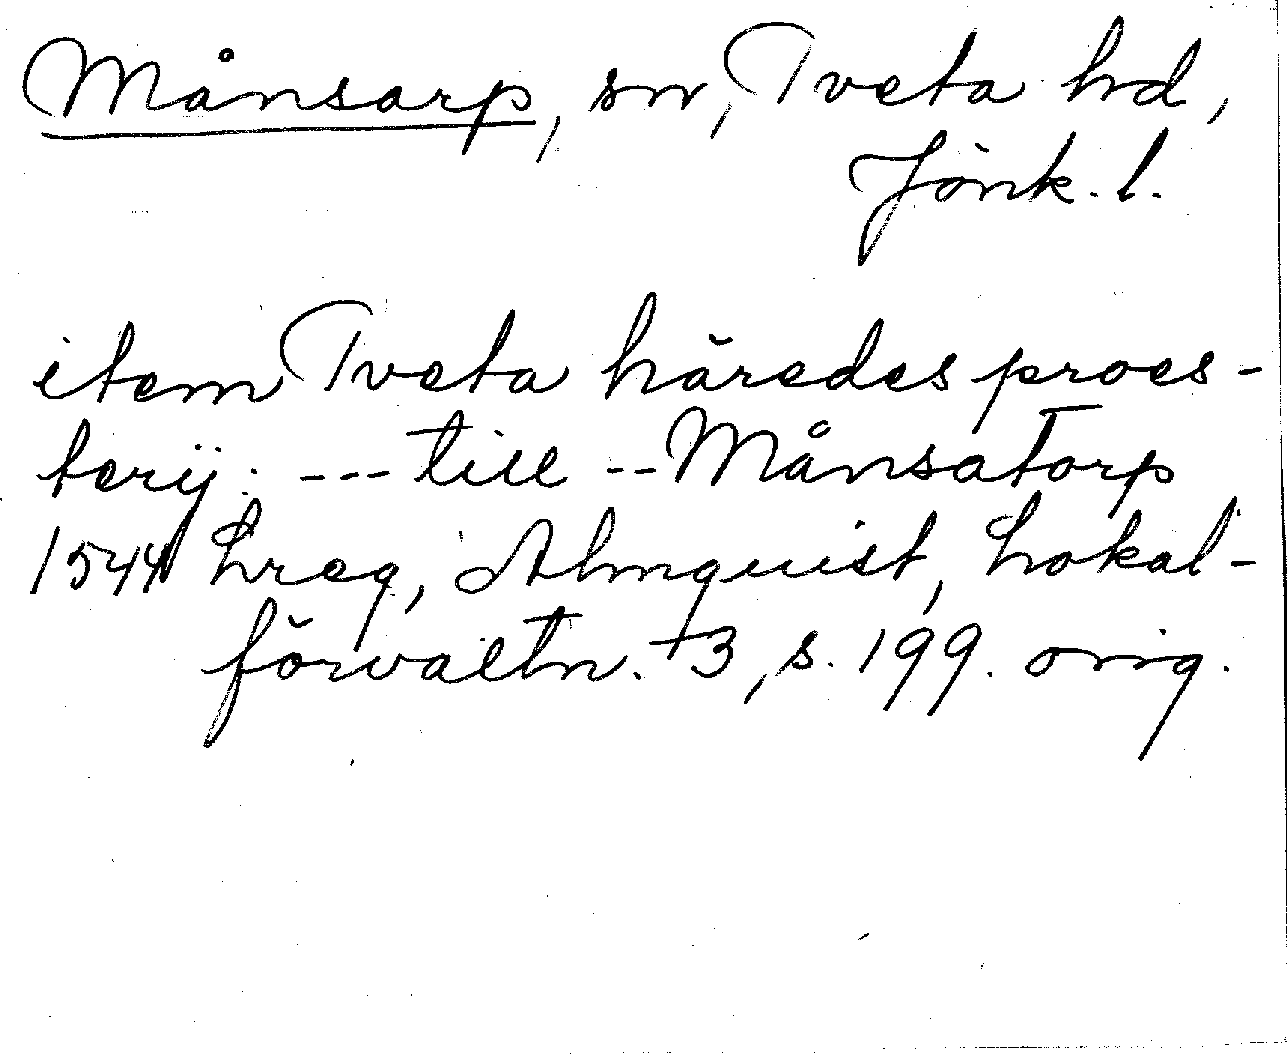 Månsarp, sn, Tveta hd,
Jönk. l.
item Tveta häredes proes-
terij: --- till -- Månsatorp
1544 Lreg, Almquist, Lokal-
förvaltn. +3, s. 199. orig.